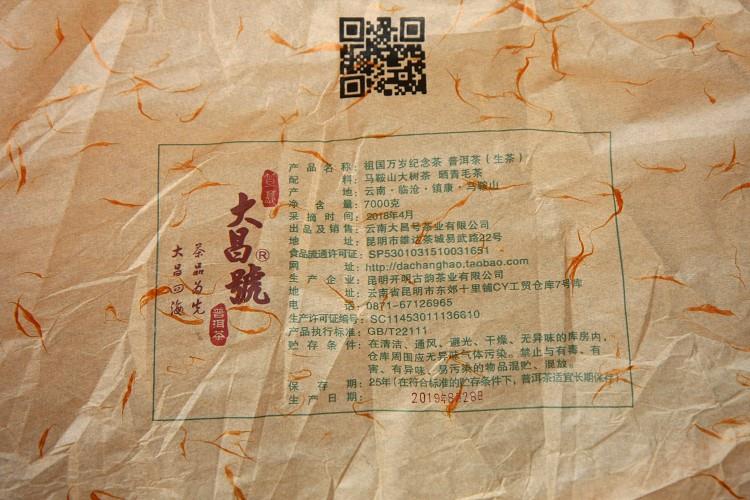 大昌號®
普洱茶
茶品为先
大昌四海
产品名称：祖国万岁纪念茶 普洱茶（生茶）
配料：马鞍山大树茶 晒青毛茶
产地：云南·临沧·镇康·马鞍山
净含量：7000克
采摘时间：2018年4月
出品及销售：云南大昌号茶业有限公司
地址：昆明市雄达茶城易武路22号
食品流通许可证：SP5301031510031651
网址：http://dachanghao.taobao.com
生产企业：昆明开明古韵茶业有限公司
地址：云南省昆明市东郊十里铺CY工贸仓库7号库
电话：0871-67126965
生产许可证编号：SC11453011136610
产品执行标准：GB/T22111
贮存条件：在清洁、通风、避光、干燥、无异味的库房内，
仓库周围应无异味气体污染。禁止与有毒、有
害、有异味、易污染的物品混贮、混放。
保存期：25年（在符合标准的贮存条件下，普洱茶适宜长期保存）
生产日期：2019年8月28日